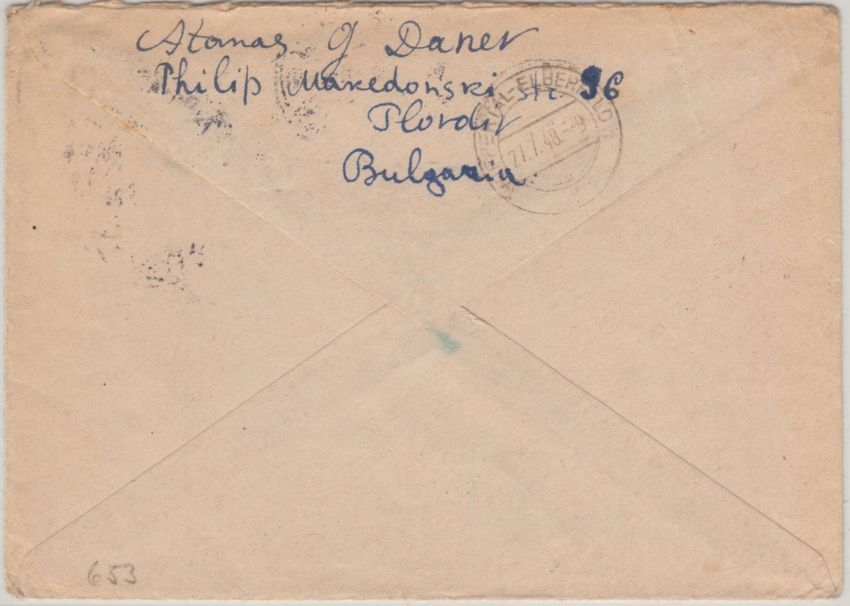 Atanas G Danev
Philip Makedonski str. 96
Plovdiv
Bulgaria.
WUPPERTAL-ELBERFELD 1
27.7.48.-9
653